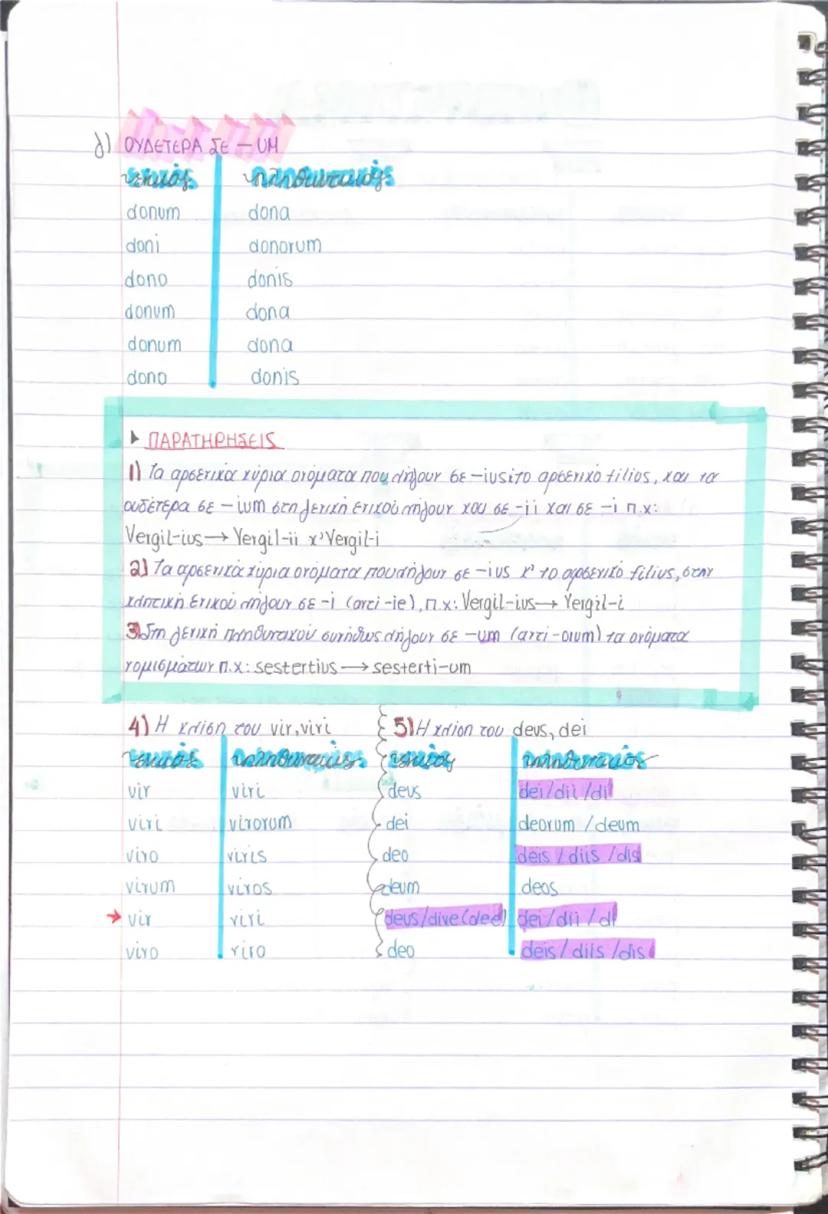 δ) ΟΥΔΕΤΕΡΑ ΣΕ -UM
ενικός πληθυντικός
donum dona
doni donorum
dono donis
donum dona
donum dona
dono donis
▶ ΠΑΡΑΤΗΡΗΣΕΙΣ
1) Τα αρσενικά κύρια ονόματα που λήγουν σε -ius, το αρσενικό filius, και τα
ουδέτερα σε -ium στη γενική ενικού λήγουν και σε -ii και σε -i π.χ:
Vergil-ius → Vergil-ii κ' Vergil-i
2) Τα αρσενικά κύρια ονόματα που λήγουν σε -ius κ' το αρσενικό filius, στην
κλητική ενικού λήγουν σε -i (αντί -ie), π.χ: Vergil-ius → Vergil-i
3) Στη γενική πληθυντικού συνήθως λήγουν σε -um (αντί -orum) τα ονόματα
νομισμάτων π.χ: sestertius → sesterti-um
4) Η κλίση του vir, viri 5) Η κλίση του deus, dei
ενικός πληθυντικός ενικός πληθυντικός
vir viri deus dei/dii/di
viri virorum dei deorum/deum
viro viris deo deis/diis/dis
virum viros deum deos
→ vir viri deus/dive(dee) dei/dii/di
viro viro deo deis/diis/dis